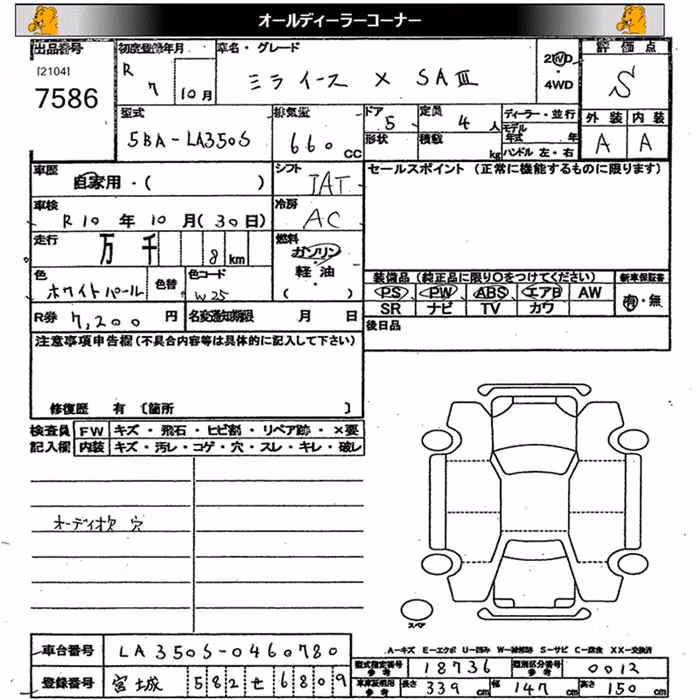 オールディーラーコーナー
出品番号 [2104] 7586
初度登録年月 R 7 10月
車名・グレード ミライース X SAⅢ
2WD・4WD
評価点 S
外装 A 内装 A
型式 5BA-LA350S
排気量 660 CC
ドア 5 形状
定員 4 人 積載 kg
ディーラー・並行
モデル年式 年
ハンドル 左・右
車歴 自家用・( )
シフト IAT
セールスポイント (正常に機能するものに限ります)
車検 R10年10月(30日)
冷房 AC
走行 万 千 8 km
燃料 ガソリン・軽油 ( )
色 ホワイトパール 色替
色コード W25
装備品 (純正品に限り○をつけてください) 新車保証書
PS PW ABS エアB AW 有・無
SR ナビ TV カワ
R券 7,200円 名変通知期限 月 日
後日品
注意事項申告欄(不具合内容等は具体的に記入して下さい)
修復歴 有 〔箇所 〕
検査員 FW キズ・飛石・ヒビ割・リペア跡・×要
記入欄 内装 キズ・汚レ・コゲ・穴・スレ・キレ・破レ
オーディオ欠 穴
スペア
A-キズ E-エクボ U-凹み W-補修跡 S-サビ C-腐食 XX-交換済
車台番号 LA350S-0460780
型式指定番号 参考 18736 類別区分番号 参考 0012
登録番号 宮城 582 せ 6809
車庫証明用 参考 長さ 339 cm 幅 147 cm 高さ 150 cm